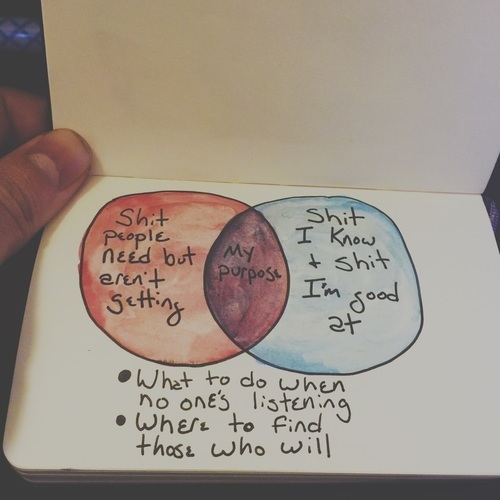 Shit
people
need but
aren't
getting
My
purpose
Shit
I Know
+ Shit
I'm good
at
• What to do when
no one's listening
• Where to find
those who will